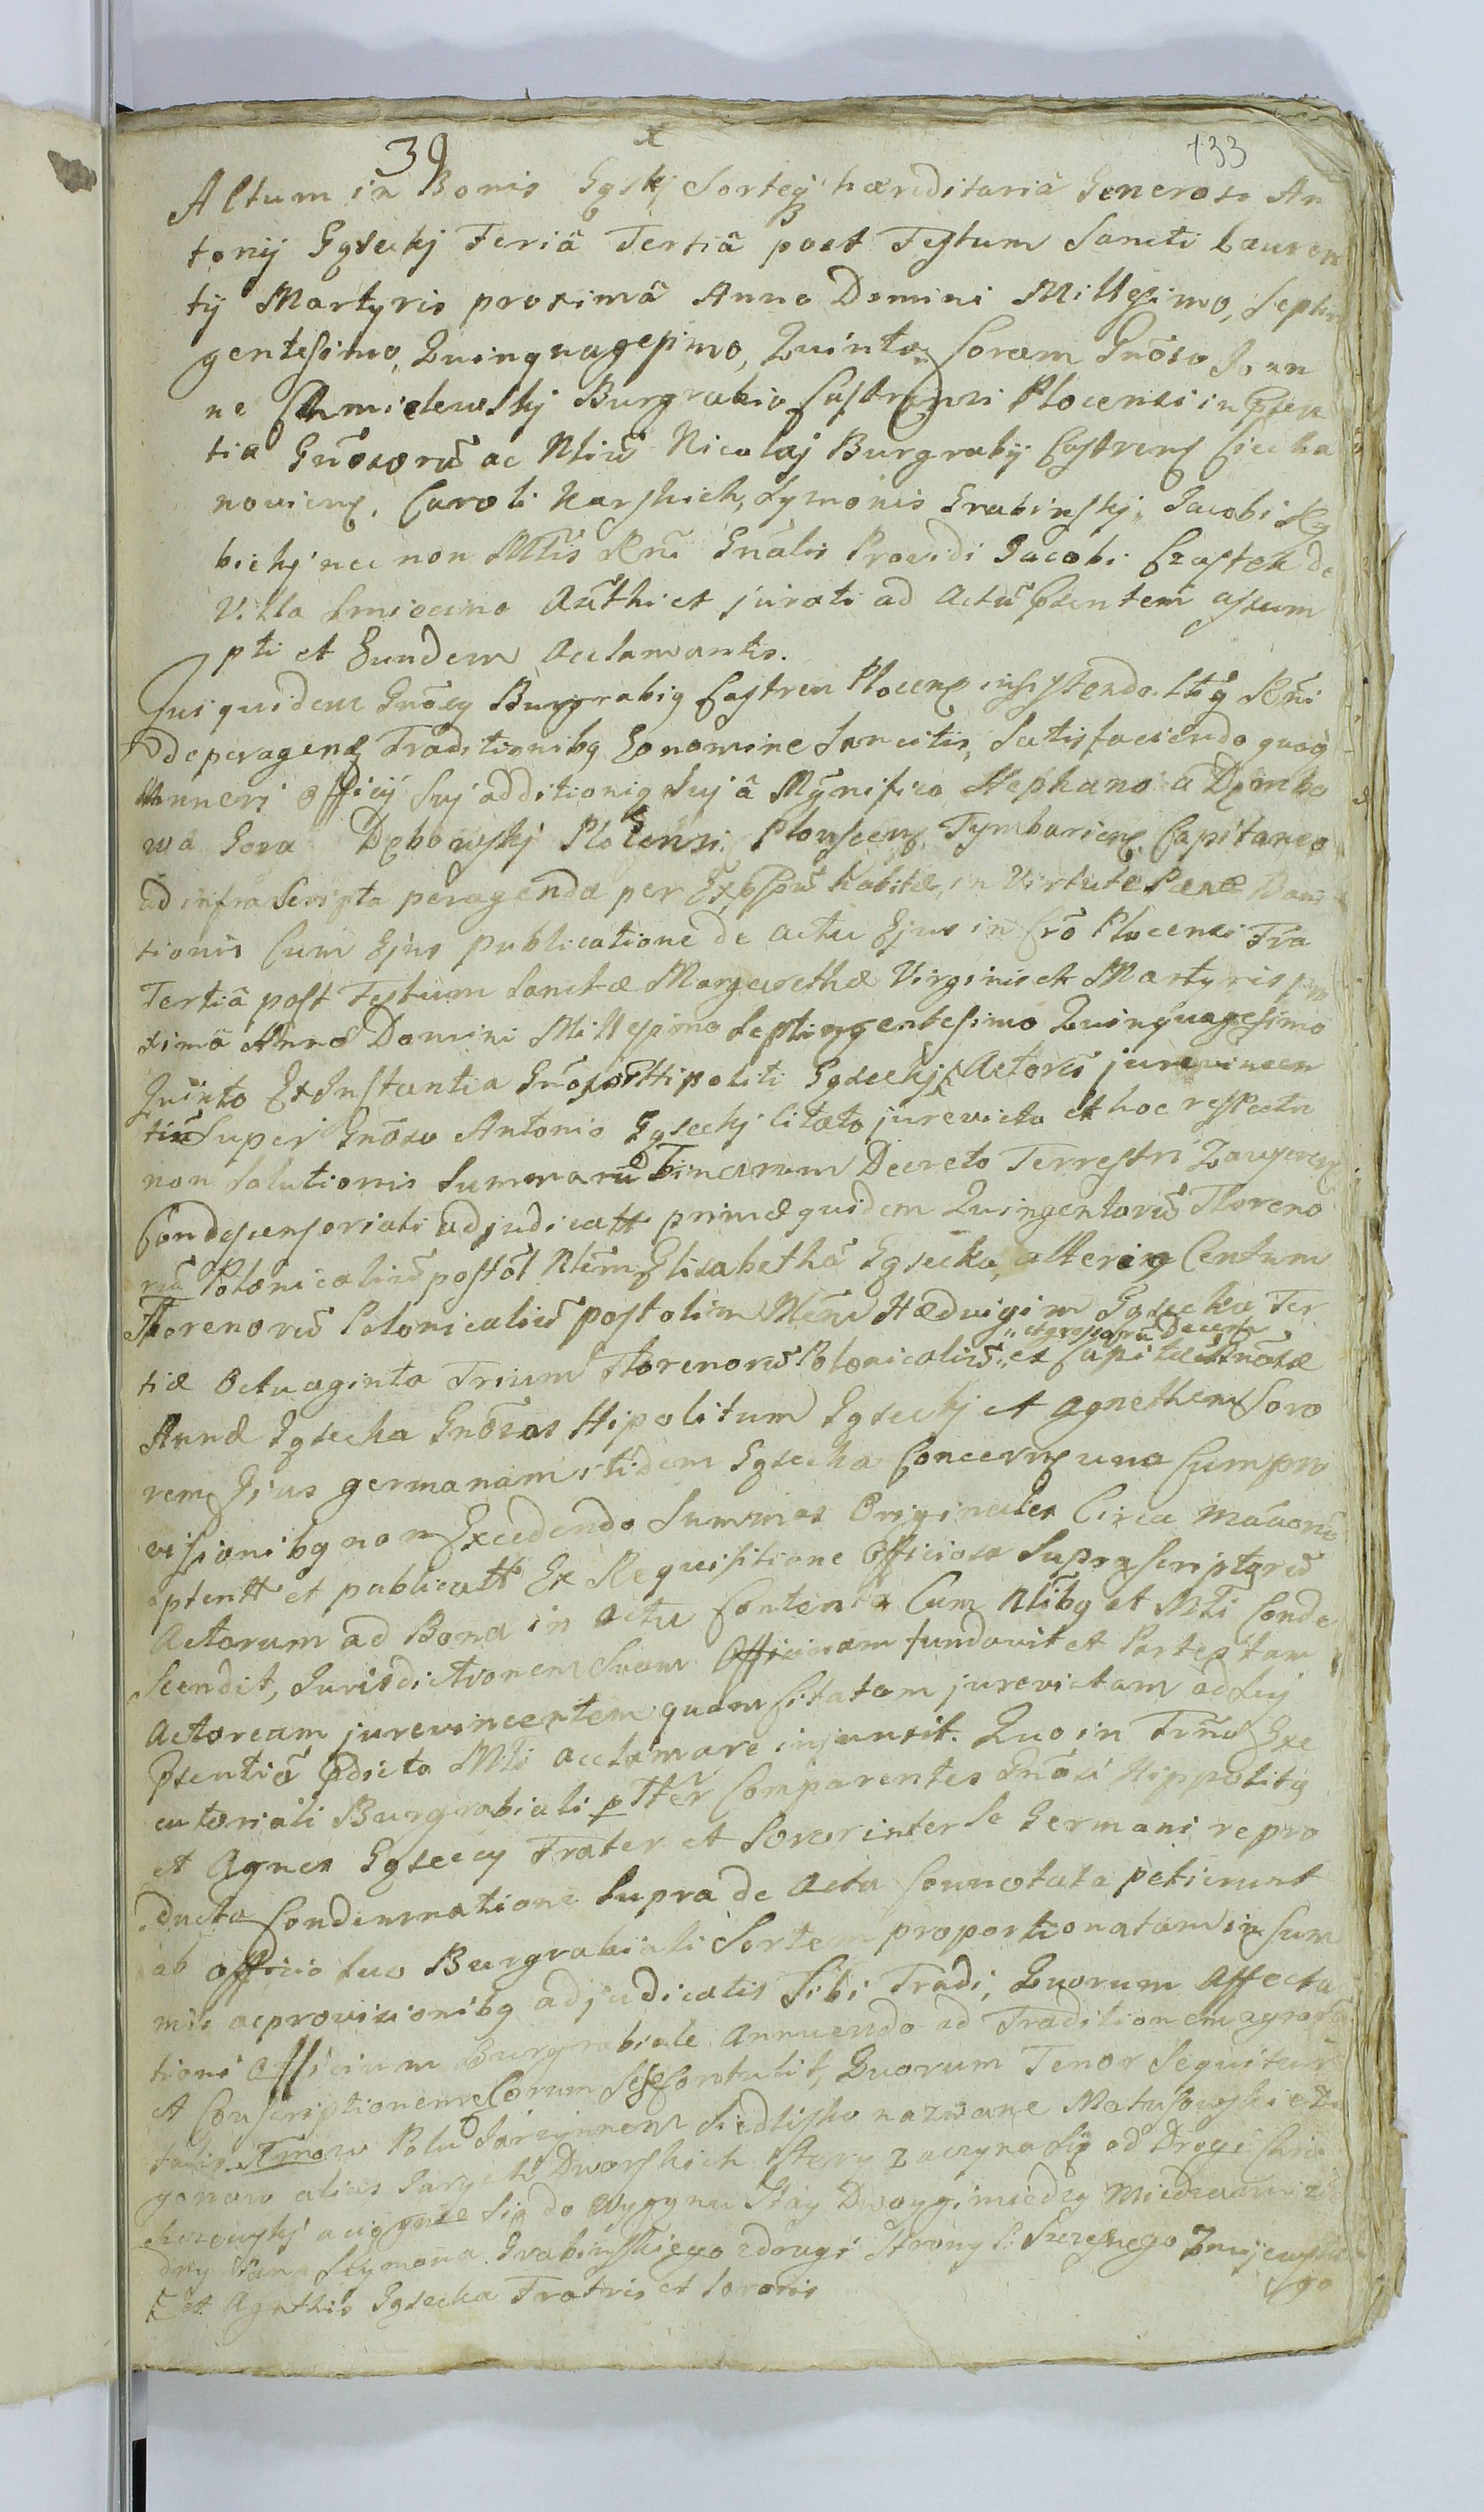 39 x 133
Actum in Bonis Gąski Sorteq̃ hæreditaria Generosi An
tonij Gąseckj Feriâ Tertiâ post Festum Sancti Lauren
tij Martyris proximâ Anno Domini Millesimo, Septin
gentesimo, Quinquagesimo, Quinto, Coram Gnõso Joan
ne Chmielewskj Burgrabio Castrensi Plocensi in Pñsen
tia Gnõsorũ ac Nliũ Nicolaj Burgrabij Castrens Ciecha
noviens, Caroli Karskich, Szymonis Grabinskj, Jacobi
bickj nec non Mtlis Rñi Gnãlis Providi Jacobi Czastek de
Villa Smiecino Aũthici et jurati ad Actũ Pñsentem assum
pti et Eundem Acclamantis.
Qui quidem Gnõsq Burgrabiq Castren Plocens insistendo Rñi
de peragend Traditionibq Eonomine Sancitis, Satisfaciendo quoq̃
Muneri Officij Suj additioniq Suj â Mgnifico Stephano a Dęmbo
wa Gora Dębowskj Plocensi, Plonscens, Tymbariens Capitaneo
ad infra Scripta peragenda per Exp̃ssũ habitæ, in Virtute Pænæ Banni
tionis Cum Ejus publicatione de actu Ejus in Crõ Plocensi Fra
Tertiâ post Festum Sanctæ Margarethæ Virginis et Martyris pro
ximâ Anno Domini Millesimo Septingentesimo Quinquagesimo
Quinto Ex Instantia Gnõsor Hipoliti Gąseckj Actorũ jurevincen
tiũ Super Gnõso Antonio Gąseckj Citato jurevicto et hoc respectu
non Solutionis Summarũ Trinarum Decreto Terrestri Zawscrens
Condescensoriali adjudicatt primæ quidem Quingentorũ Floreno
rũ Polonicaliũ post õl Nlem Elisabethã Gąsecka, alteriq Centum
Florenorũ Polonicaliũ post olim Nlem Hædvigim Gąsecka Ter
tiæ Octuaginta Trium Florenorũ Polonicaliũ „et grossorũ Decem„ ex Capite Gnõsæ
Annæ Gąsecka Gnõsos Hipolitum Gąseckj et Agnethem Soro
rem Ejus germanam itidem Gąsecka Concerns una Cum pro
visionibq non Excedendo Summas Originales Circa
ptentt et publicatt Ex Requisitione Officiosa Supra Scriptorũ
Actorum ad Bona in Actu Contenta Cum Nlibq et Mtli Conde
scendit, Jurisdictionem Suam Officiosam fundavit et Partes tam
Actoream jurevincentem quam Citatam jurevictam ad Suj
Pñsentiã p̃dicto Mtli acclamare injunxit. Quo in Trño Exe
cutoriali Burgrabiali pltter Comparentes Gnõsi Hippolitq
et Agnes Gąseccy Frater et Soror inter Se Germani repro
ducta Condemnatione Supra de Actu Connotata petierunt
ab Officio Suo Burgrabiali Sortem proportionatam in Sum
mis ac provisionibq adjudicatis Sibi Tradi, Quorum Affecta
tioni Officium Burgrabiale Annuendo ad Traditionem agrorũ
et Conscriptionem Eorum Sese Contulit, Quorum Tenor Sequitur
talis. Siedlisko nazwane
gonow alias Dworskich Story zaczyna Się od Drogi
aciągnie Się do Wygynu Stay Dwoygi miedzy Miedzami z ie
dny Pana Szymona Grabinskiego z drugi Strony P. Szczęsnego Zmijewskie
go
et Agnetis Gąsecka Fratris et Sororis